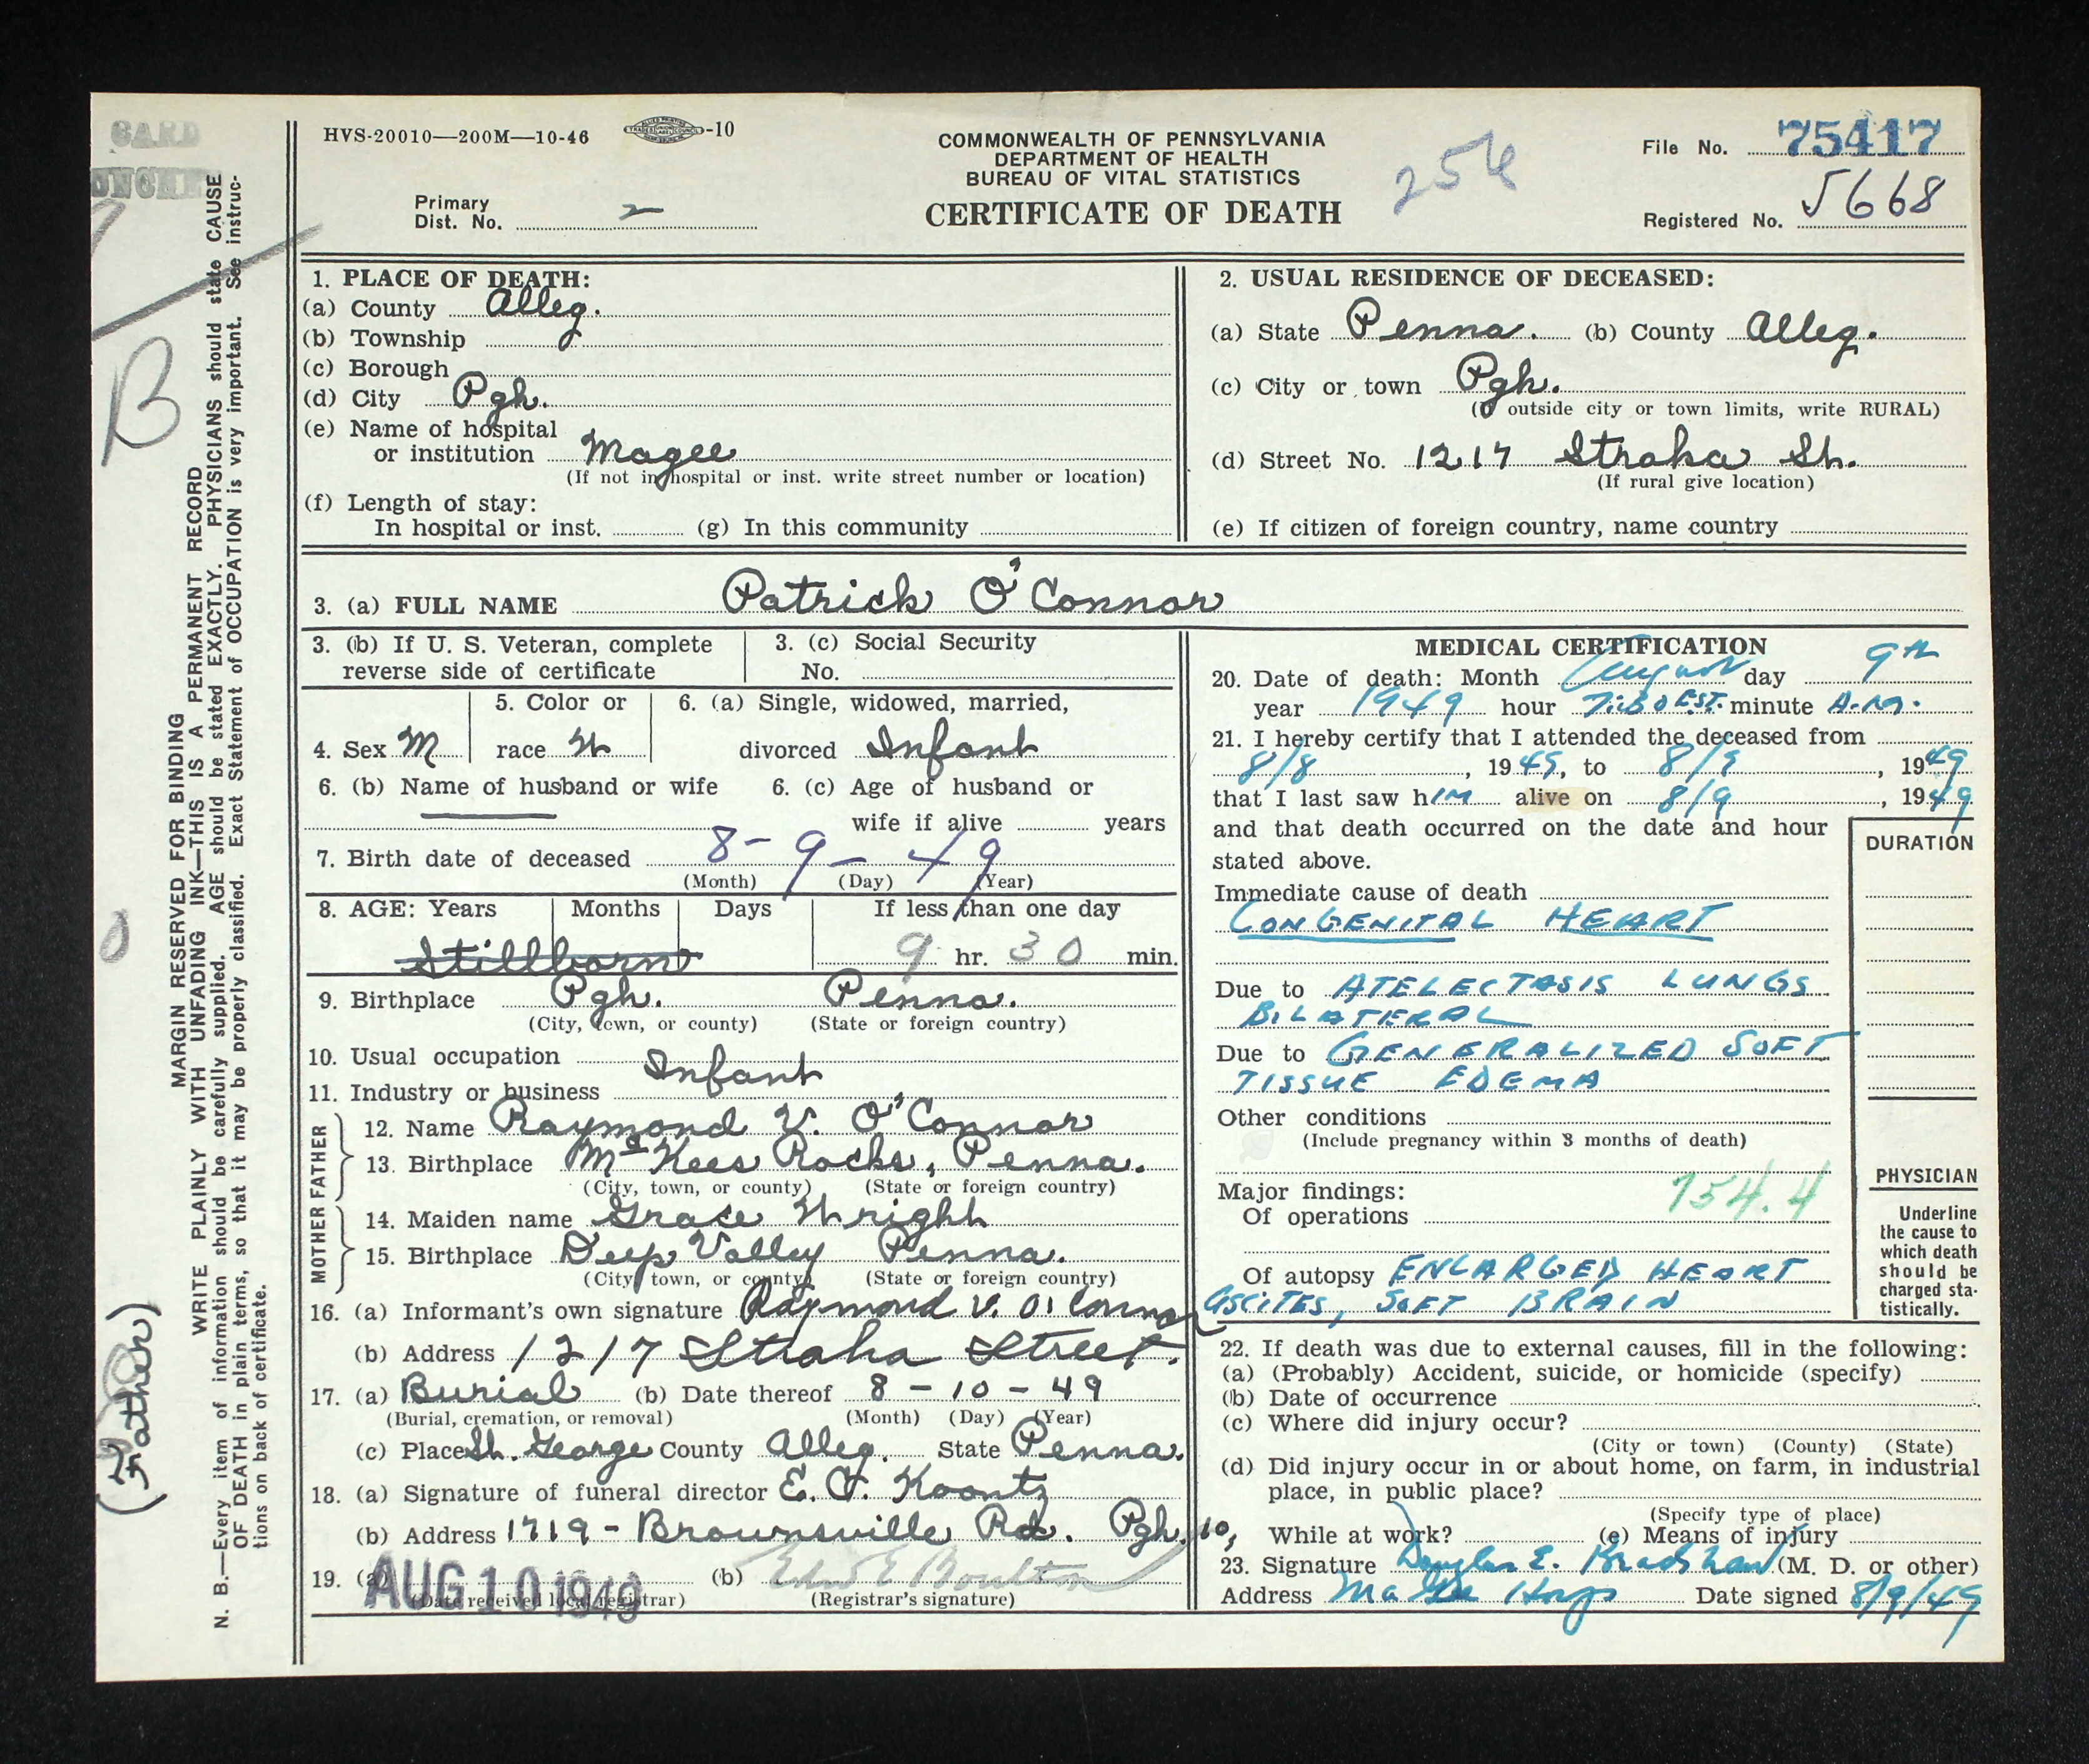 CARD
HVS-20010—200M—10-46 -10
COMMONWEALTH OF PENNSYLVANIA
DEPARTMENT OF HEALTH
BUREAU OF VITAL STATISTICS
CERTIFICATE OF DEATH
File No. 75417
Registered No. 5668
Primary
Dist. No. 2
1. PLACE OF DEATH:
(a) County Alleg.
(b) Township
(c) Borough
(d) City Pgh.
(e) Name of hospital
or institution Magee
(If not in hospital or inst. write street number or location)
(f) Length of stay:
In hospital or inst. (g) In this community
2. USUAL RESIDENCE OF DECEASED:
(a) State Penna. (b) County Alleg.
(c) City or town Pgh.
(If outside city or town limits, write RURAL)
(d) Street No. 1217 Straka St.
(If rural give location)
(e) If citizen of foreign country, name country
3. (a) FULL NAME Patrick O'Connor
3. (b) If U. S. Veteran, complete
reverse side of certificate
3. (c) Social Security
No.
4. Sex M
5. Color or
race W
6. (a) Single, widowed, married,
divorced Infant
6. (b) Name of husband or wife
6. (c) Age of husband or
wife if alive years
7. Birth date of deceased 8-9-49
(Month) (Day) (Year)
8. AGE: Years Months Days If less than one day
Stillborn 9 hr. 30 min.
9. Birthplace Pgh. Penna.
(City, town, or county) (State or foreign country)
10. Usual occupation Infant
11. Industry or business
FATHER
12. Name Raymond V. O'Connor
13. Birthplace McKees Rocks, Penna.
(City, town, or county) (State or foreign country)
MOTHER
14. Maiden name Grace Wright
15. Birthplace Deep Valley Penna.
(City, town, or county) (State or foreign country)
16. (a) Informant's own signature Raymond V. O'Connor
(b) Address 1217 Straka Street.
17. (a) Burial (b) Date thereof 8-10-49
(Burial, cremation, or removal) (Month) (Day) (Year)
(c) Place St. George County Alleg. State Penna.
18. (a) Signature of funeral director E. F. Koontz
(b) Address 1719-Brownsville Rd. Pgh. 10,
19. (a) AUG 10 1949 (b) Edw E Boulton
(Date received local registrar) (Registrar's signature)
MEDICAL CERTIFICATION
20. Date of death: Month August day 9th
year 1949 hour 7:30 EST. minute A.M.
21. I hereby certify that I attended the deceased from
8/8, 1949, to 8/9, 1949
that I last saw him alive on 8/9, 1949
and that death occurred on the date and hour
stated above.
DURATION
Immediate cause of death
CONGENITAL HEART
Due to ATELECTASIS LUNGS
BILATERAL
Due to GENERALIZED SOFT
TISSUE EDEMA
Other conditions
(Include pregnancy within 3 months of death)
Major findings: 754.4
Of operations
Of autopsy ENLARGED HEART
ASCITES, SOFT BRAIN
PHYSICIAN
Underline
the cause to
which death
should be
charged sta-
tistically.
22. If death was due to external causes, fill in the following:
(a) (Probably) Accident, suicide, or homicide (specify)
(b) Date of occurrence
(c) Where did injury occur?
(City or town) (County) (State)
(d) Did injury occur in or about home, on farm, in industrial
place, in public place?
(Specify type of place)
While at work? (e) Means of injury
23. Signature Douglas E. Bradshaw (M. D. or other)
Address Magee Hosp Date signed 8/9/49
MARGIN RESERVED FOR BINDING
WRITE PLAINLY WITH UNFADING INK—THIS IS A PERMANENT RECORD
N. B.—Every item of information should be carefully supplied. AGE should be stated EXACTLY. PHYSICIANS should state CAUSE
OF DEATH in plain terms, so that it may be properly classified. Exact Statement of OCCUPATION is very important. See instruc-
tions on back of certificate.
B
(Father)